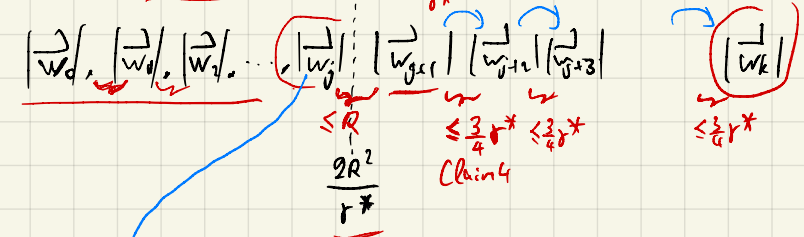 |w₀|, |w₁|, |w₂|, ..., |w_j| |w_{j+1}| |w_{j+2}| |w_{j+3}| |w_k|
≤ R ≤ 3/4 γ* ≤ 3/4 γ* ≤ 3/4 γ*
2R²/γ* Claim 4